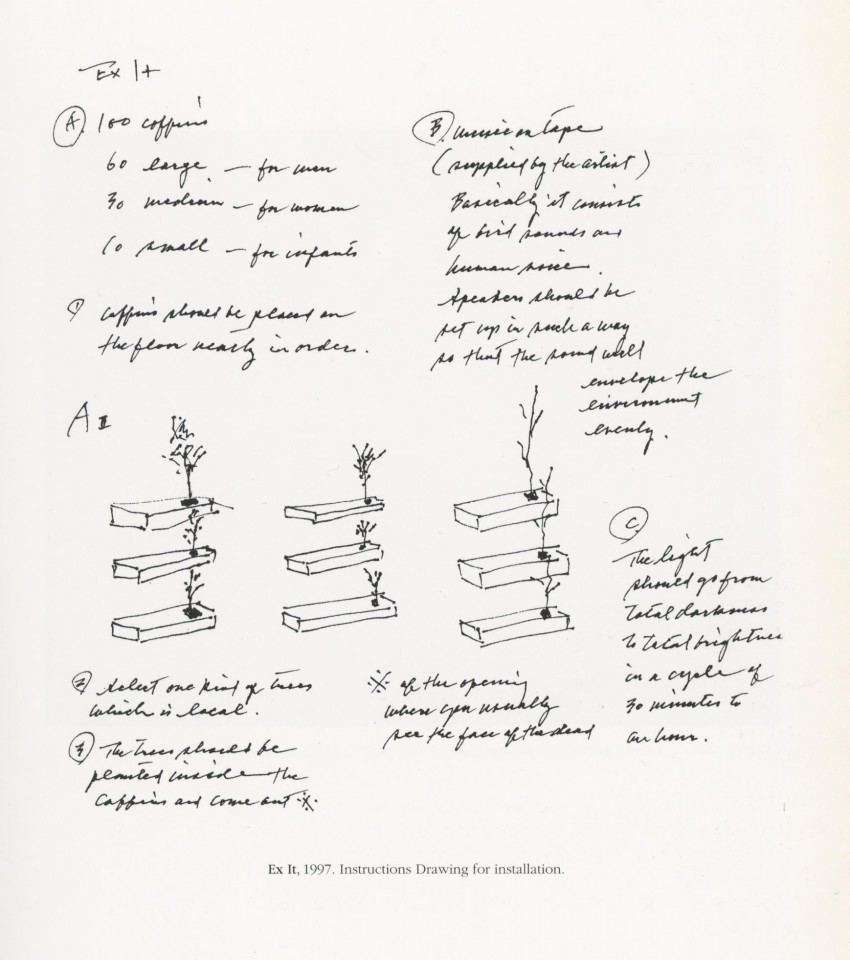 Ex It
Ⓐ 100 coffins
60 large — for men
30 medium — for women
10 small — for infants
① coffins should be placed on
the floor neatly in order.
Ⓑ music on tape
(supplied by the artist)
Basically it consists
of bird sounds and
human voice.
Speakers should be
set up in such a way
so that the sound will
envelope the
environment
evenly.
A I
② select one kind of trees
which is local.
③ The trees should be
planted inside the
coffins and come out ※
※ of the opening
where you usually
see the face of the dead
Ⓒ
The light
should go from
total darkness
to total brightness
in a cycle of
30 minutes to
an hour.
Ex It, 1997. Instructions Drawing for installation.